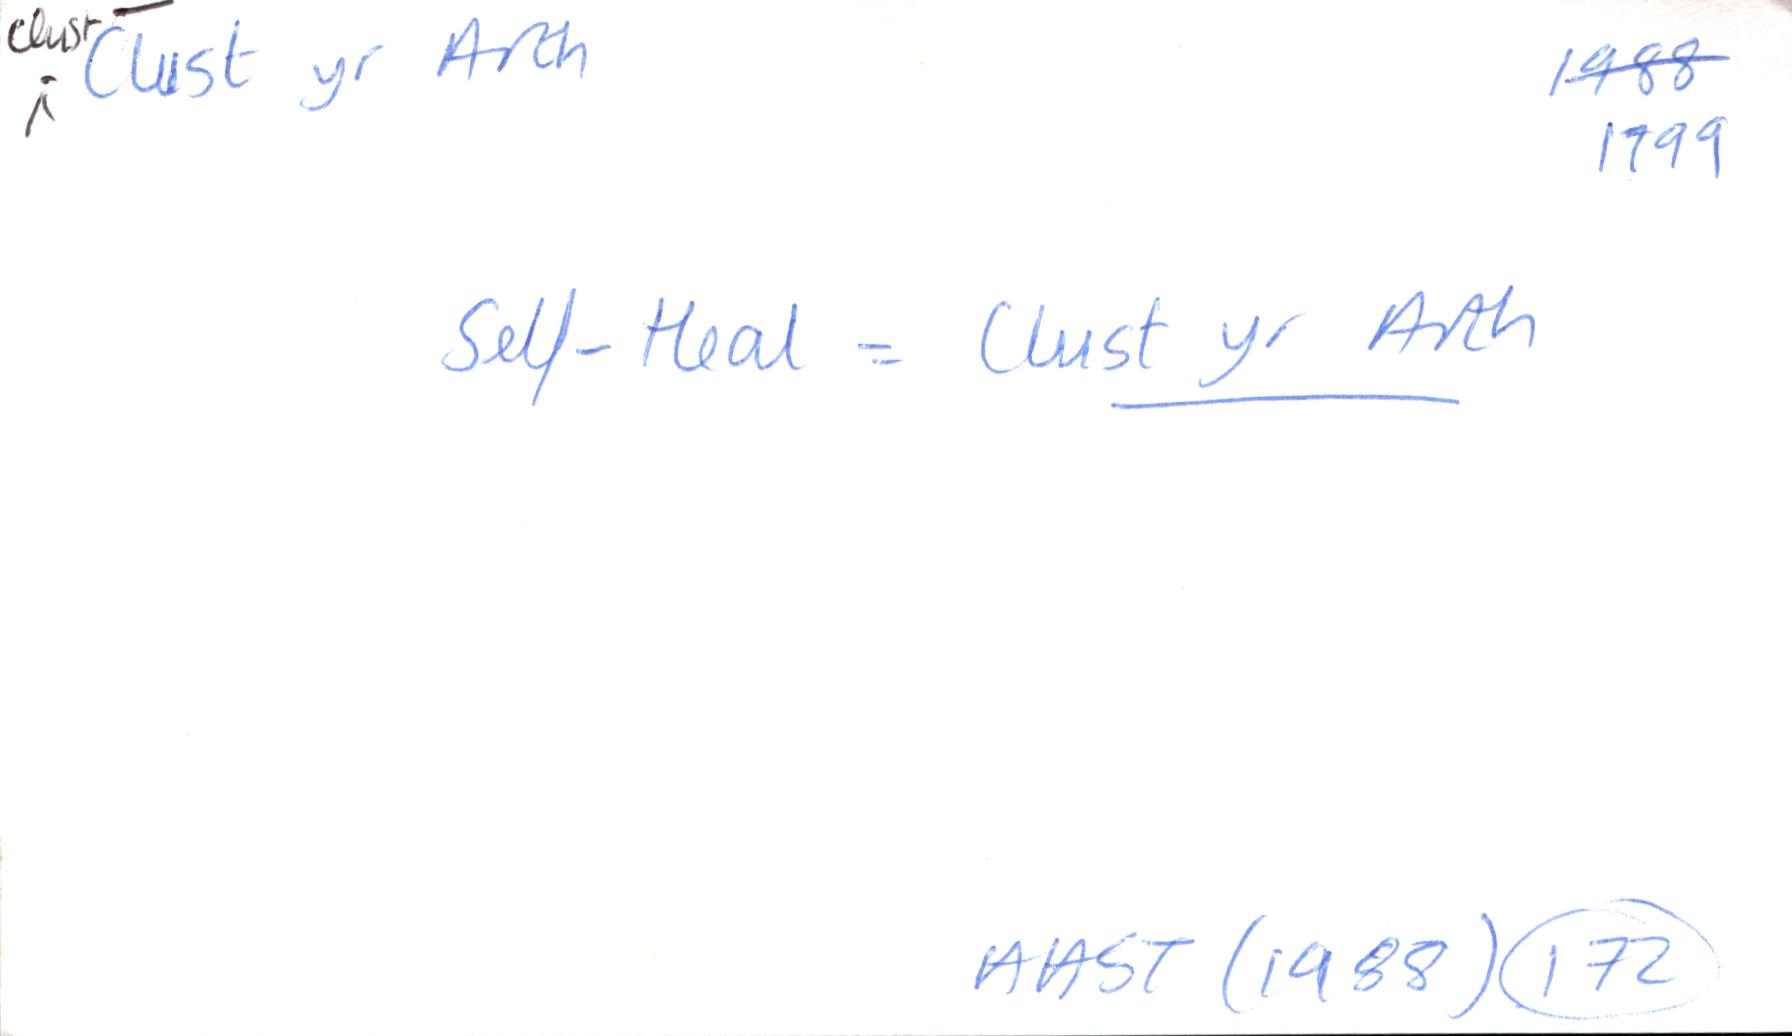 clust
Clust yr Arth
1988
1799
Self-Heal = Clust yr Arth
AAST (1988) 172